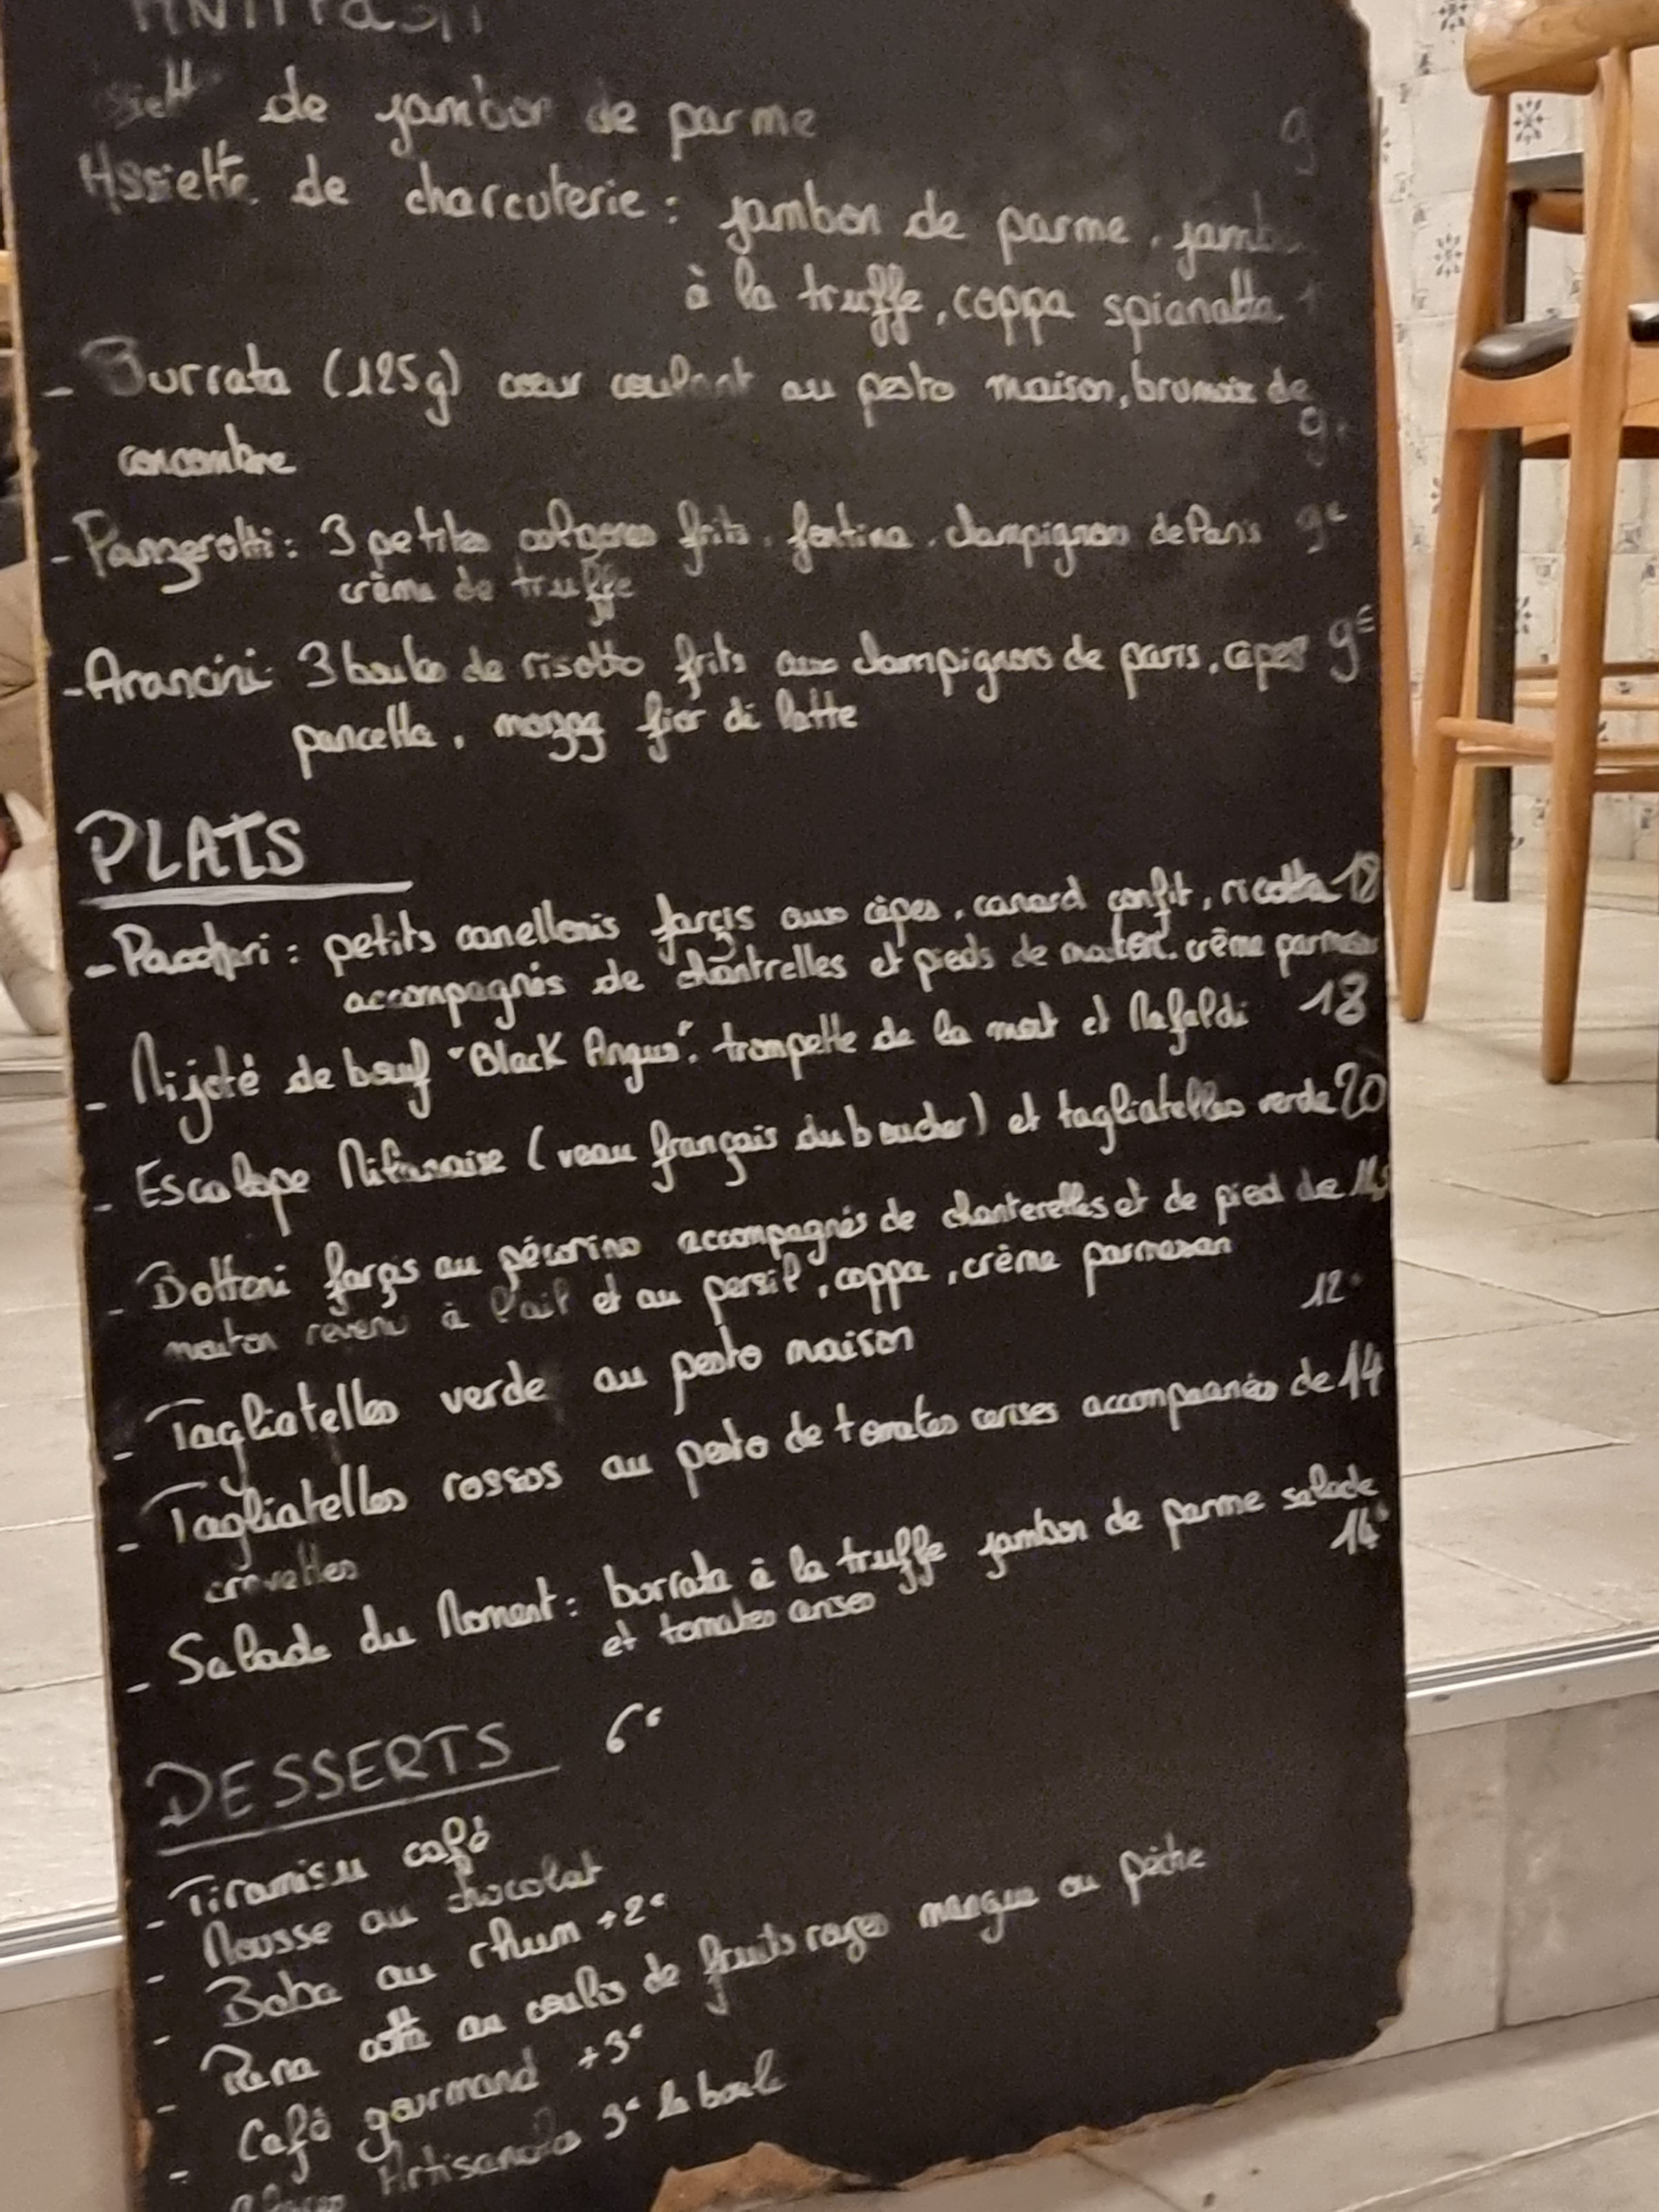 ANTIPASTI
de jambon de parme 9
Assiette de charcuterie : jambon de parme, jambon
à la truffe, coppa spianatta
- Burrata (125g) cœur coulant au pesto maison, brunoix de
9€
concombre
- Panzerotti : 3 petites calzones frits, fontina, champignons de Paris 9€
crème de truffe
- Arancini 3 boules de risotto frits aux champignons de paris, cèpes 9€
pancetta, mozza fior di latte
PLATS
- Paccheri : petits canellonis farçis aux cèpes, canard confit, ricotta 18
accompagnés de chantrelles et pieds de mouton. crème parmesan
- Mijoté de bœuf "Black Angus". trompette de la mort et Mafaldi 18
- Escalope Milanaise (veau français du boucher) et tagliatelles verde 20
- Bottoni farçis au pécorino accompagnés de chanterelles et de pied de
mouton revenu à l'ail et au persil, coppa, crème parmesan
- Tagliatelles verde au pesto maison 12€
- Tagliatelles rossos au pesto de tomates cerises accompagnées de 14
crevettes
- Salade du Moment : burrata à la truffe jambon de parme salade
et tomates cerises 14€
DESSERTS 6€
- Tiramisu café
- Mousse au chocolat
- Baba au rhum +2€
- Pana cotta au coulis de fruits rouges mangue ou pêche
- Café gourmand +3€
Artisanales 3€ la boule